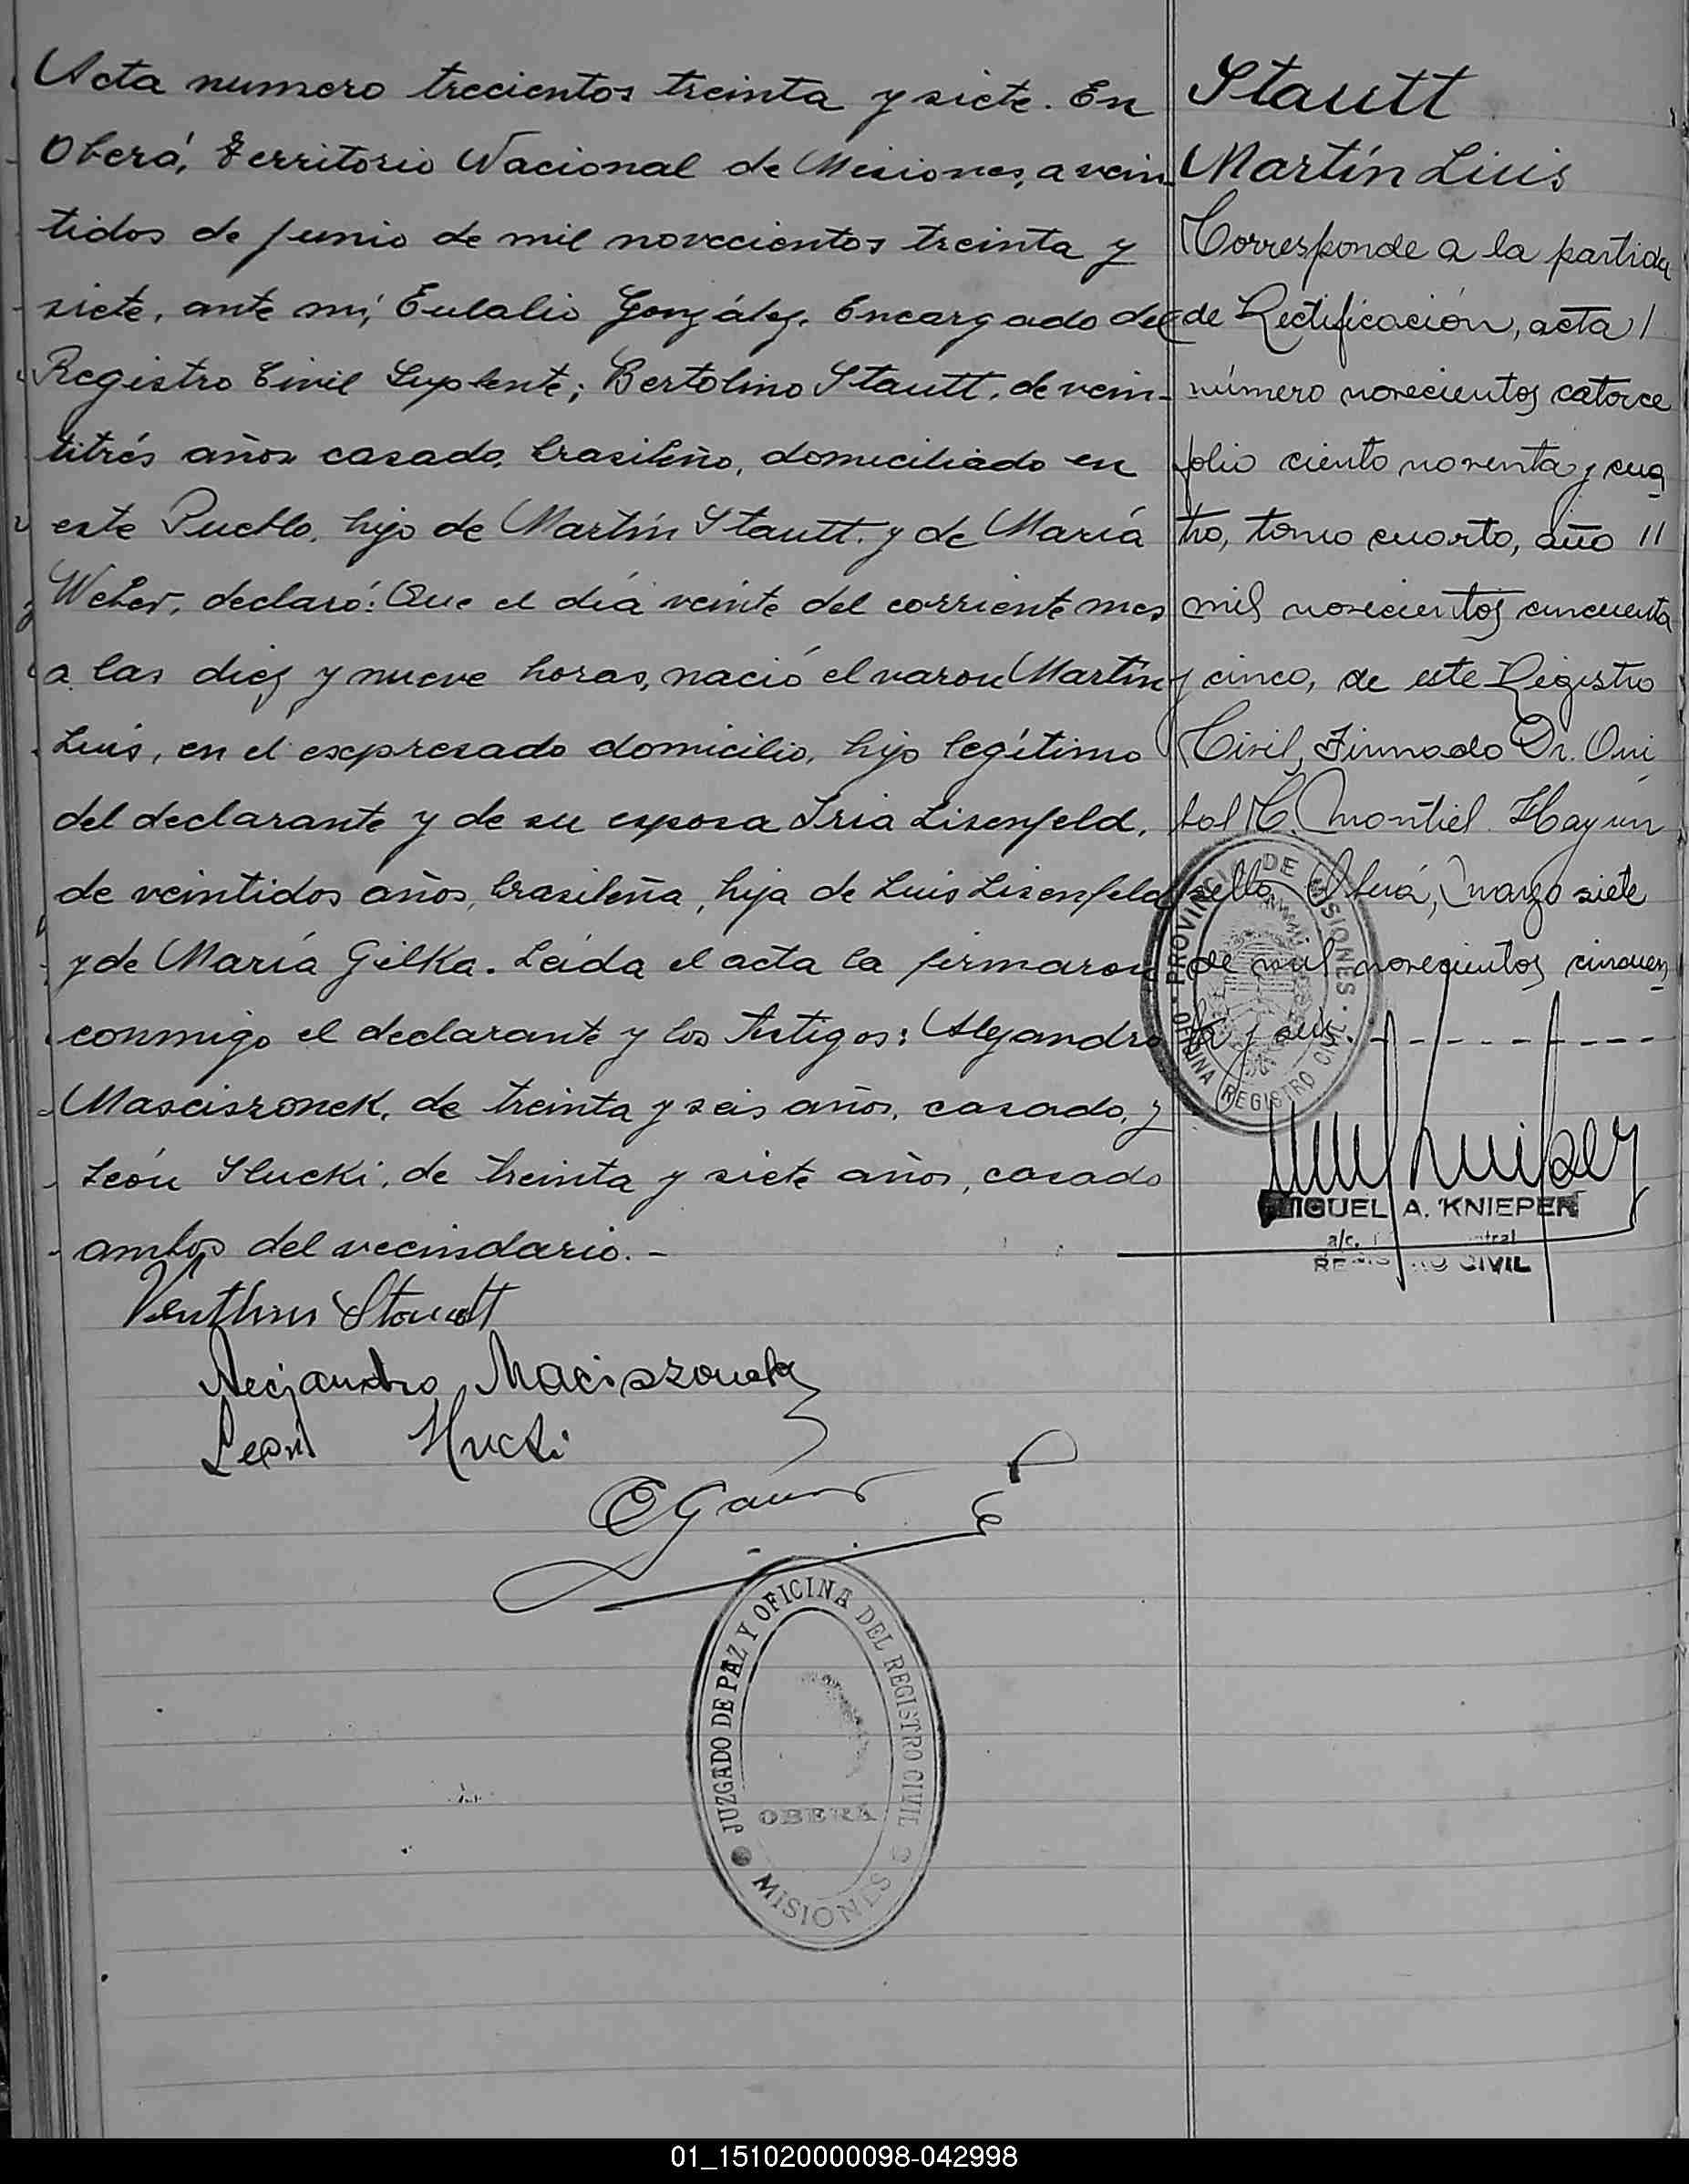 Acta numero trecientos treinta y siete. En
Oberá, Territorio Nacional de Misiones, a vein-
tidos de junio de mil novecientos treinta y
siete, ante mi, Eulalio González, Encargado del
Registro Civil Suplente; Bertolino Stautt, de vein-
titrés años casado, brasileño, domiciliado en
este Pueblo, hijo de Martín Stautt y de María
Weber, declaró: Que el día veinte del corriente mes
a las diez y nueve horas, nació el varon Martín
Luis, en el expresado domicilio, hijo legítimo
del declarante y de su esposa Iria Lisenfeld,
de veintidos años, brasileña, hija de Luis Lisenfeld
y de María Gilka. Leida el acta la firmaron
conmigo el declarante y los testigos: Alejandro
Masciszonek, de treinta y seis años, casado, y
León Slucki, de treinta y siete años, casado
ambos del vecindario.-
Stautt
Alejandro Maciszonek
León Slucki
JUZGADO DE PAZ Y OFICINA DEL REGISTRO CIVIL
OBERÁ
MISIONES
Stautt
Martín Luis
Corresponde a la partida
de Rectificación, acta /
número novecientos catorce
folio ciento noventa y cua
tro, tomo cuarto, año //
mil novecientos cincuenta
y cinco, de este Registro
Civil, Firmado Dr.
Montiel. Hay un
sello. Oberá, Marzo siete
de mil novecientos cincuen
ta y seis.- - - - - - - - -
PROVINCIA DE MISIONES
OFICINA REGISTRO CIVIL
MIGUEL A. KNIEPER
a/c.
REGISTRO CIVIL
01_151020000098-042998